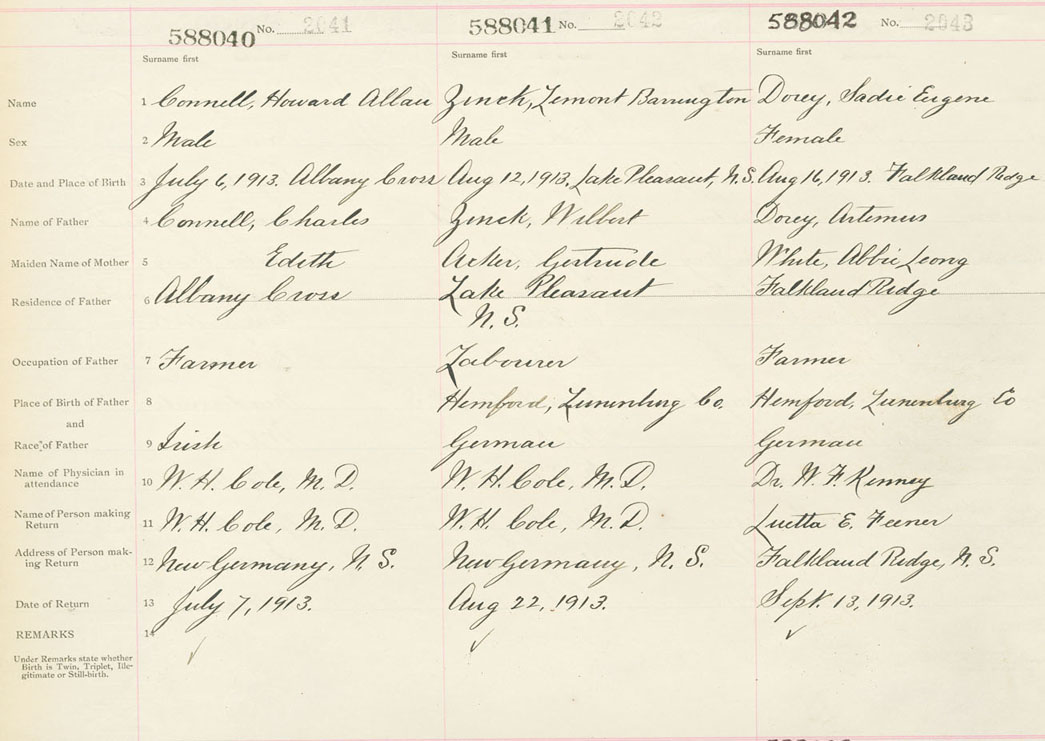 588040 No. 2041 588041 No. 2042 588042 No. 2043
Surname first Surname first Surname first
Name 1 Connell, Howard Allan Zinck, Lemont Barrington Dorey, Sadie Eugene
Sex 2 Male Male Female
Date and Place of Birth 3 July 6, 1913. Albany Cross Aug 12, 1913, Lake Pleasant, N.S. Aug 16, 1913. Falkland Ridge
Name of Father 4 Connell, Charles Zinck, Wilbert Dorey, Artemus
Maiden Name of Mother 5 Edith Acker, Gertrude White, Abbie Leong
Residence of Father 6 Albany Cross Lake Pleasant Falkland Ridge
N. S.
Occupation of Father 7 Farmer Labourer Farmer
Place of Birth of Father 8 Hemford, Lunenburg Co. Hemford, Lunenburg Co
and
Race of Father 9 Irish German German
Name of Physician in
attendance 10 W. H. Cole, M. D. W. H. Cole, M. D. Dr. W. F. Kenney
Name of Person making
Return 11 W. H. Cole, M. D. W. H. Cole, M. D. Luetta E. Feener
Address of Person mak-
ing Return 12 New Germany, N. S. New Germany, N. S. Falkland Ridge, N. S.
Date of Return 13 July 7, 1913. Aug 22, 1913. Sept. 13, 1913.
REMARKS 14
Under Remarks state whether
Birth is Twin, Triplet, Ille-
gitimate or Still-birth.